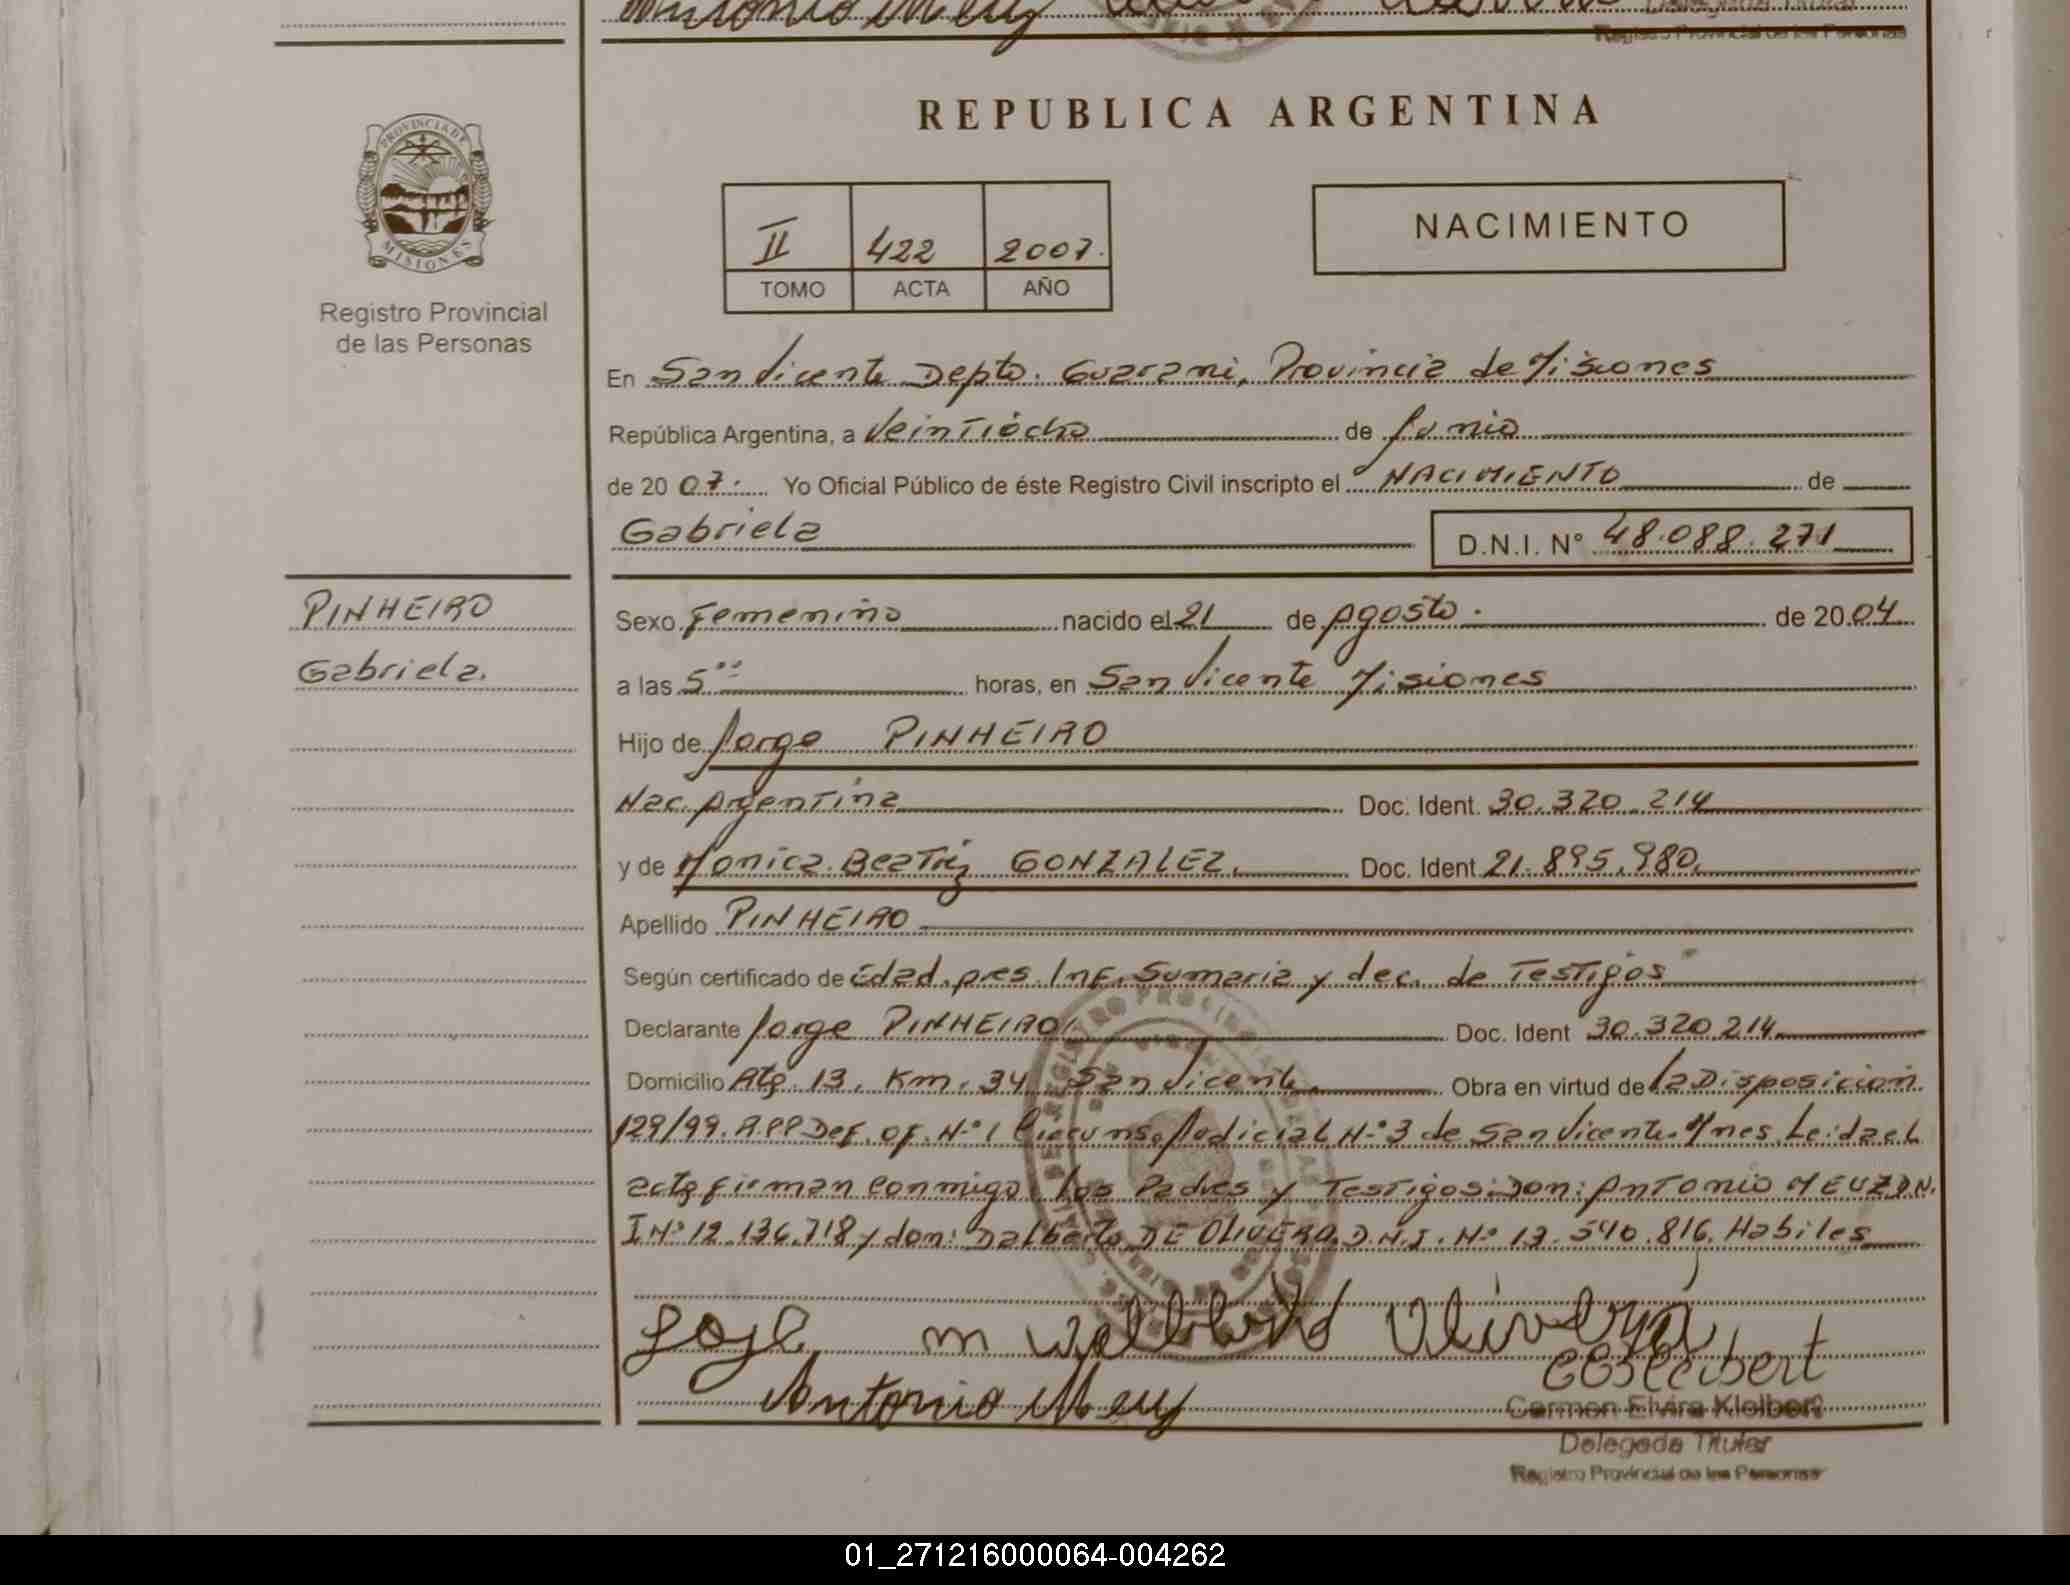 Registro Provincial de las Personas
REPUBLICA ARGENTINA
PROVINCIA DE
MISIONES
Registro Provincial
de las Personas
II 422 2007.
TOMO ACTA AÑO
NACIMIENTO
En San Vicente Depto. Guarani, Provincia de Misiones
República Argentina, a Veintiocho de Junio
de 2007. Yo Oficial Público de éste Registro Civil inscripto el NACIMIENTO de
Gabriela D.N.I. N° 48.088.271
PINHEIRO
Gabriela.
Sexo Femenino nacido el 21 de Agosto. de 2004
a las 5 horas, en San Vicente Misiones
Hijo de Jorge PINHEIRO
Nac. Argentina Doc. Ident. 30.320.214
y de Monica Beatriz GONZALEZ. Doc. Ident 21.895.980.
Apellido PINHEIRO
Según certificado de Edad. pres. Inf. Sumaria y dec. de Testigos
Declarante Jorge PINHEIRO Doc. Ident 30.320.214
Domicilio Rta. 13. Km. 34 San Vicente. Obra en virtud de la Disposición
129/99. R.P.P Def. of. N°1 Circuns. Judicial N°3 de San Vicente. Mnes. Leida el
acta firman conmigo los Padres y Testigos: Don: Antonio MEUZ D.N.
I N° 12.136.718 y don: Dalberto DE OLIVERA. D.N.I. N° 13.540.816. Habiles
Jorge m Olivera
Antonio Meuz
Carmen Elvira Kleibert
Delegada Titular
Registro Provincial de las Personas
01_271216000064-004262